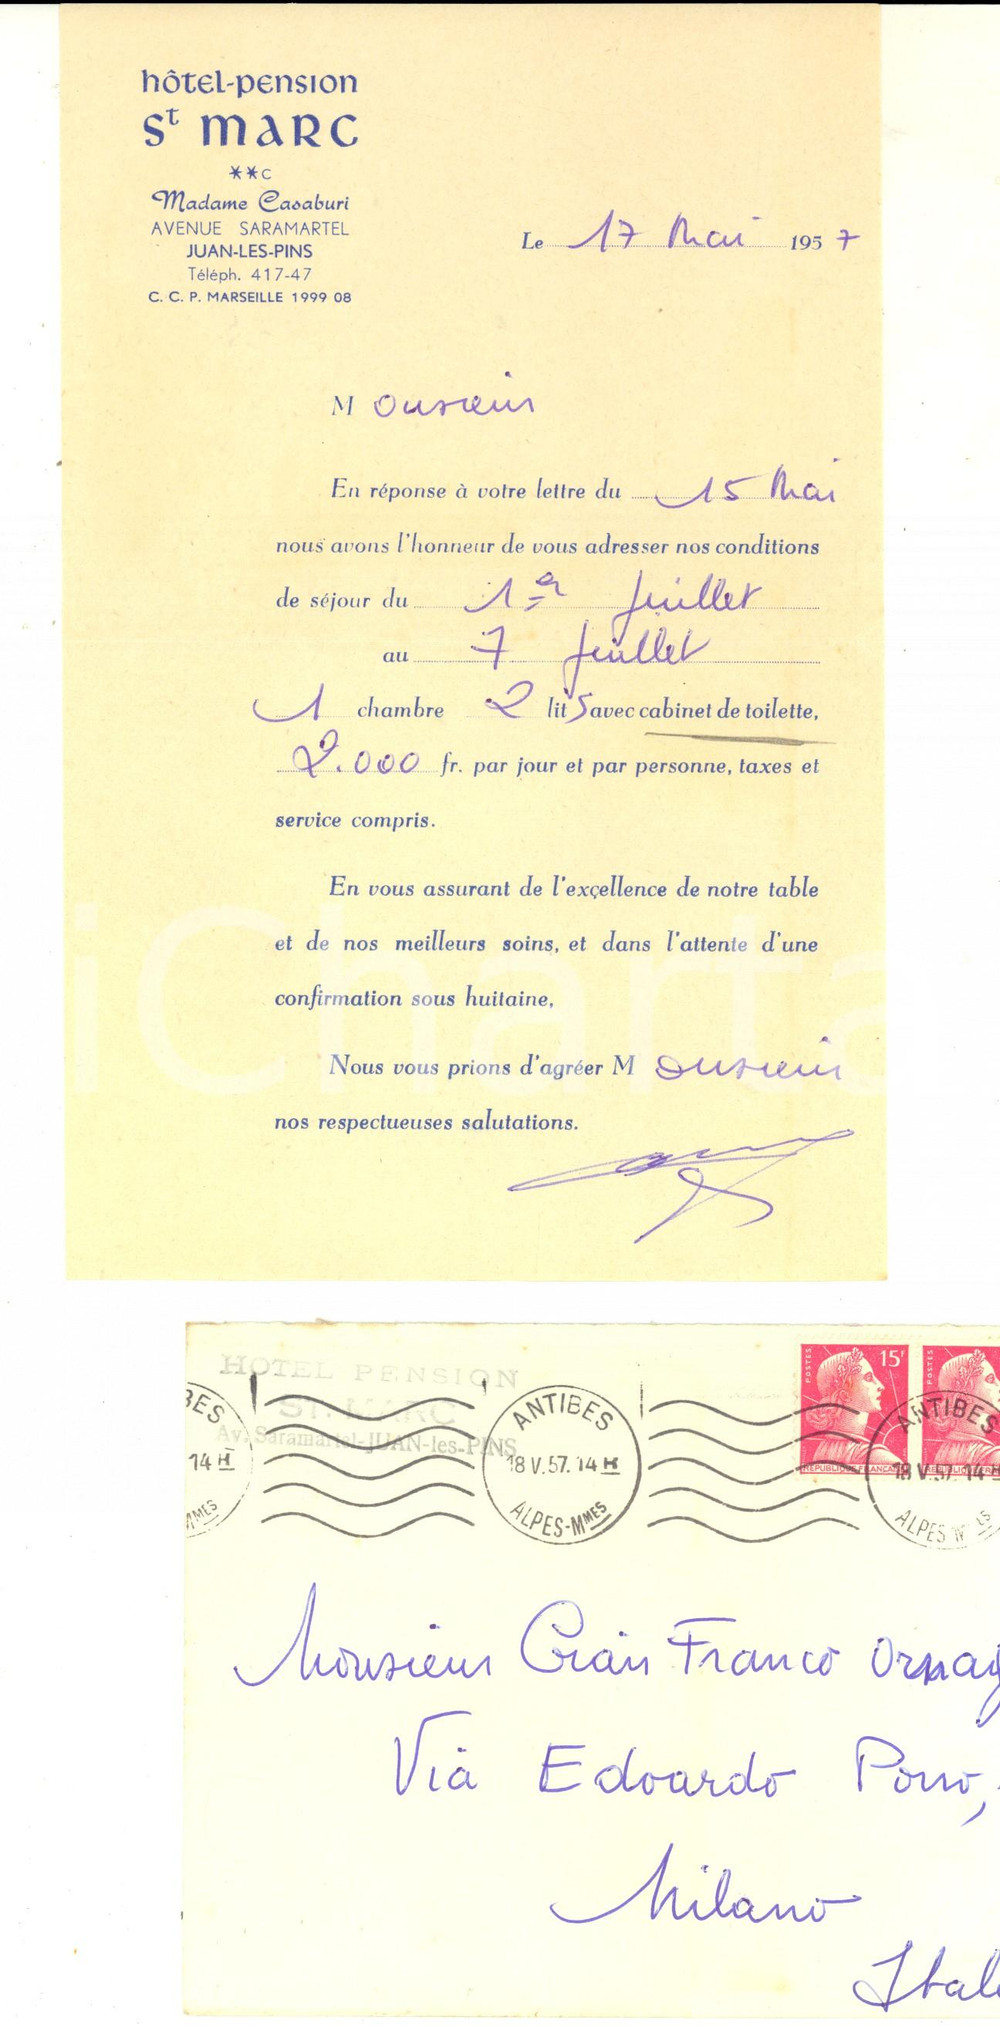 hôtel-pension
St MARC
**C
Madame Casaburi
AVENUE SARAMARTEL
JUAN-LES-PINS
Téléph. 417-47
C. C. P. MARSEILLE 1999 08
Le 17 Mai 1957
Monsieur
En réponse à votre lettre du 15 Mai
nous avons l'honneur de vous adresser nos conditions
de séjour du 1er Juillet
au 7 Juillet
1 chambre 2 lits avec cabinet de toilette,
2.000 fr. par jour et par personne, taxes et
service compris.
En vous assurant de l'excellence de notre table
et de nos meilleurs soins, et dans l'attente d'une
confirmation sous huitaine,
Nous vous prions d'agréer Monsieur
nos respectueuses salutations.
iCharta
HOTEL PENSION
ST. MARC
Av. Saramartel-JUAN-les-PINS
BES
14 H
MMES
ANTIBES
18 V.57. 14 H
ALPES-MMES
POSTES
15F
REPUBLIQUE FRANCAISE
POSTES
ANTIBES
18 V.57 14 H
ALPES
Monsieur Gian Franco Ornag
Via Edoardo Porro,
Milano
Ital